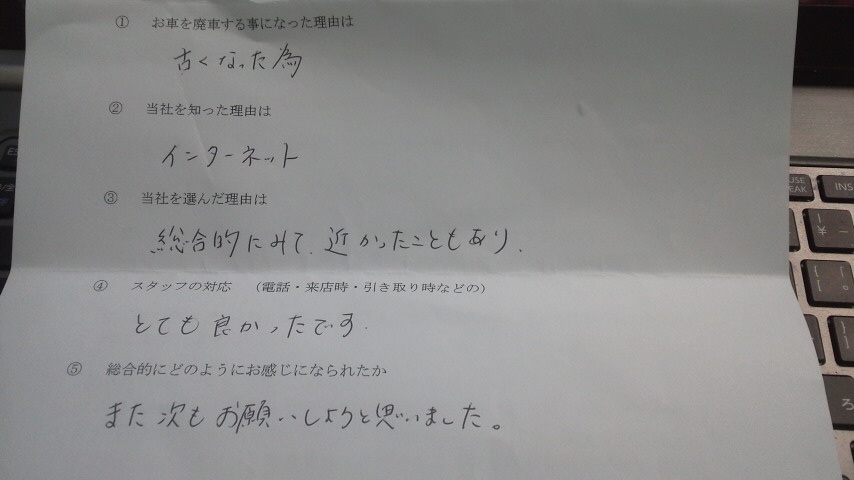 ① お車を廃車する事になった理由は
古くなった為
② 当社を知った理由は
インターネット
③ 当社を選んだ理由は
総合的にみて、近かったこともあり、
④ スタッフの対応 （電話・来店時・引き取り時などの）
とても良かったです.
⑤ 総合的にどのようにお感じになられたか
また次もお願いしようと思いました。
INS